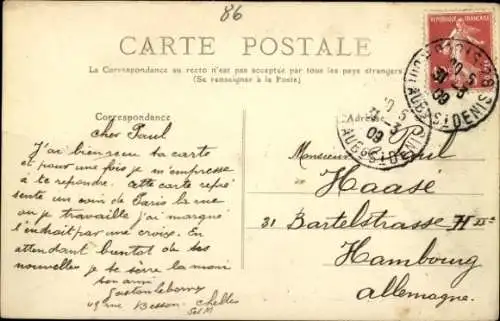 86
CARTE POSTALE
La Correspondance au recto n'est pas acceptée par tous les pays étrangers
(Se renseigner à la Poste)
REPUBLIQUE FRANÇAISE
Correspondance
Adresse
cher Paul
J'ai bien reçu ta carte
et pour une fois je m'empresse
à te repondre. Cette carte repré
sente un coin de Paris la rue
ou je travaille j'ai marqué
l'endroit par une croix. En
attendant bientot de tes
nouvelles je te serre la main
ton ami
49 rue Besson Chelles
S et M
Monsieur Paul
Haasé
31 Bartelstrasse H II
Hambourg
Allemagne.
10 5
31-3
09
AUB S. DENIS
10 5
31-3
09
AUB S. DENIS